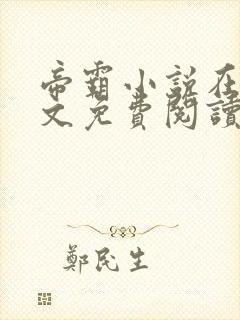 帝霸小説在
文免費閱讀
鄭民生